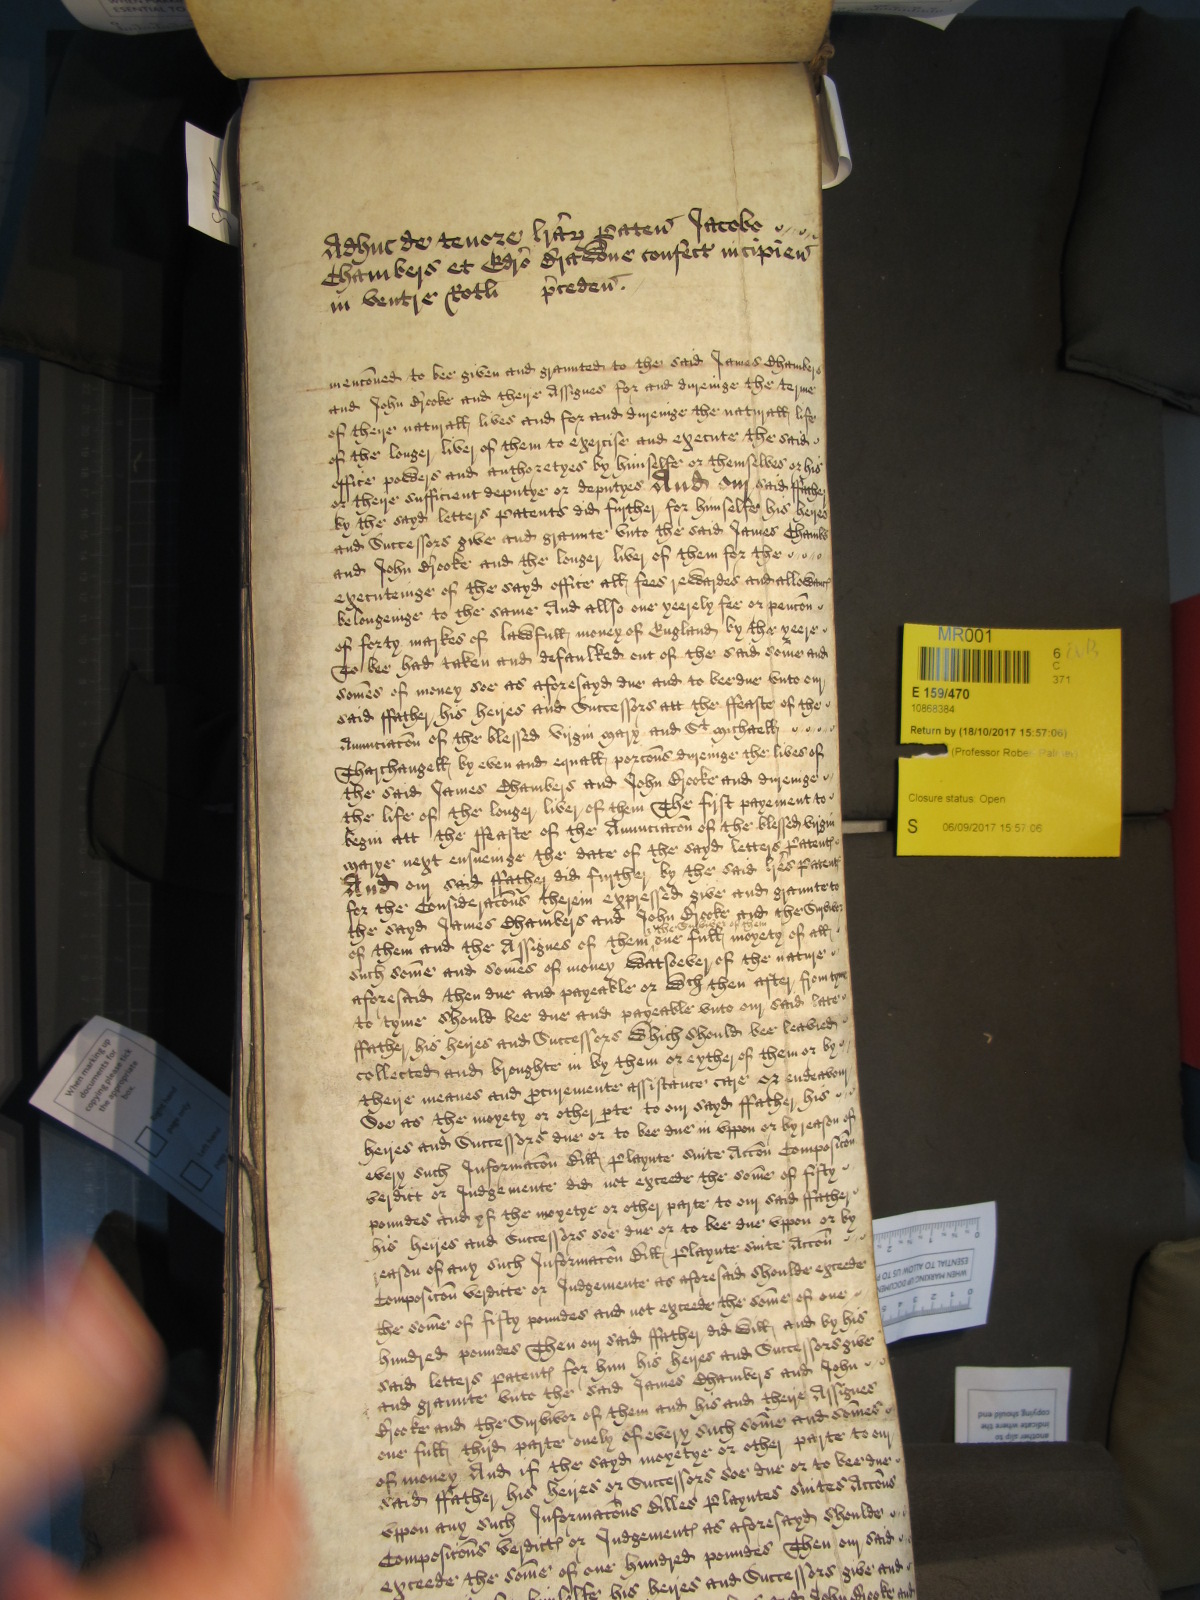 Adhuc de tenore lr̃ar̃ paten̄ Jacobo
Chambers et Edr̃o Bradone confect incipien̄
in ventre Rotli p̄ceden̄.
mencōned to bee given and graunted to the said James Chambers
and John Brooke and theire Assignes for and dureinge the terme
of theire naturall lives and for and dureinge the naturall life
of the longer liver of them to exercise and execute the said
office powers and authoretyes by himselfe or themselves or his
or theire sufficient deputye or deputyes And our said ffather
by the sayd letters Patents did further for himselfe his heires
and Successors give and graunte vnto the said James Chambers
and John Brooke and the longer liver of them for the
executeinge of the sayd office all fees rewardes and allowances
belongeinge to the same And allso one yeerely fee or pencōn
of forty markes of lawfull money of England by the yeere
To bee had taken and defaulked out of the said some and
somes of money soe as aforesayd due and to bee due vnto our
said ffather his heires and Successors att the ffeaste of the
Annunciacōn of the blessed virgin mary and St michaell
Tharchangell by even and equall porcōns dureinge the lives of
the said James Chambers and John Brooke and dureinge
the life of the longer liver of them The first payement to
begin att the ffeaste of the Annunciacōn of the blessed virgin
marye next ensueinge the date of the sayd letters Patent
And our said ffather did further by the said lr̃es Patent
for the Consideracōns therein expressed give and graunte to
the sayd James Chambers and John Brooke and the Survivor
of them and the Assignes of them the Survivor of them one full moyety of all
such some and somes of money Watsoever of the nature
aforesaid then due and payeable or Wch then after from tyme
to tyme should bee due and payeable vnto our said late
ffather his heires and Successors Which should bee leavied
collected and broughte in by them or eyther of them or by
theire meanes and procuremente assistance care or endeavour
Soe as the moyety or other pte to our sayd ffather his
heires and Successors due or to bee due in vppon or by reason of
every such Informacōn Bill Playnte suite Accōn Composicōn
verdict or Judgemente did not exceede the some of fifty
poundes and yf the moyetye or other parte to our said ffather
his heires and Successors soe due or to bee due vppon or by
reason of any such Informacōn Bill Playnte suite Accōn
Composicōn verdicte or Judgemente as aforesaid shoulde exceede
the some of fifty poundes and not exceede the some of one
hundred poundes Then our said ffather did Will and by his
said letters patent for him his heires and Successors give
and graunte vnto the said James Chambers and John
Brooke and the Survivor of them and his and theire Assignes
one full third parte onely of every such some and somes
of money And if the sayd moyetye or other parte to our
said ffather his heires or Successors soe due or to bee due
vppon any such Informacōns Billes Playntes suites Accōns
Composicōns verdict or Judgement as aforesayd shoulde
exceede the some of one hundred poundes Then our said
his heires and Successors give and
John Brooke and
MR001
6
C
371
E 159/470
10868384
Return by (18/10/2017 15:57:06)
(Professor Robert Palmer)
Closure status: Open
S 06/09/2017 15:57:06
When marking up
documents for
copying please tick
the appropriate
box.
WHEN MARKING UP DOCUMEN
ESENTIAL TO ALLOW US TO
another slip to
indicate where the
copying should end